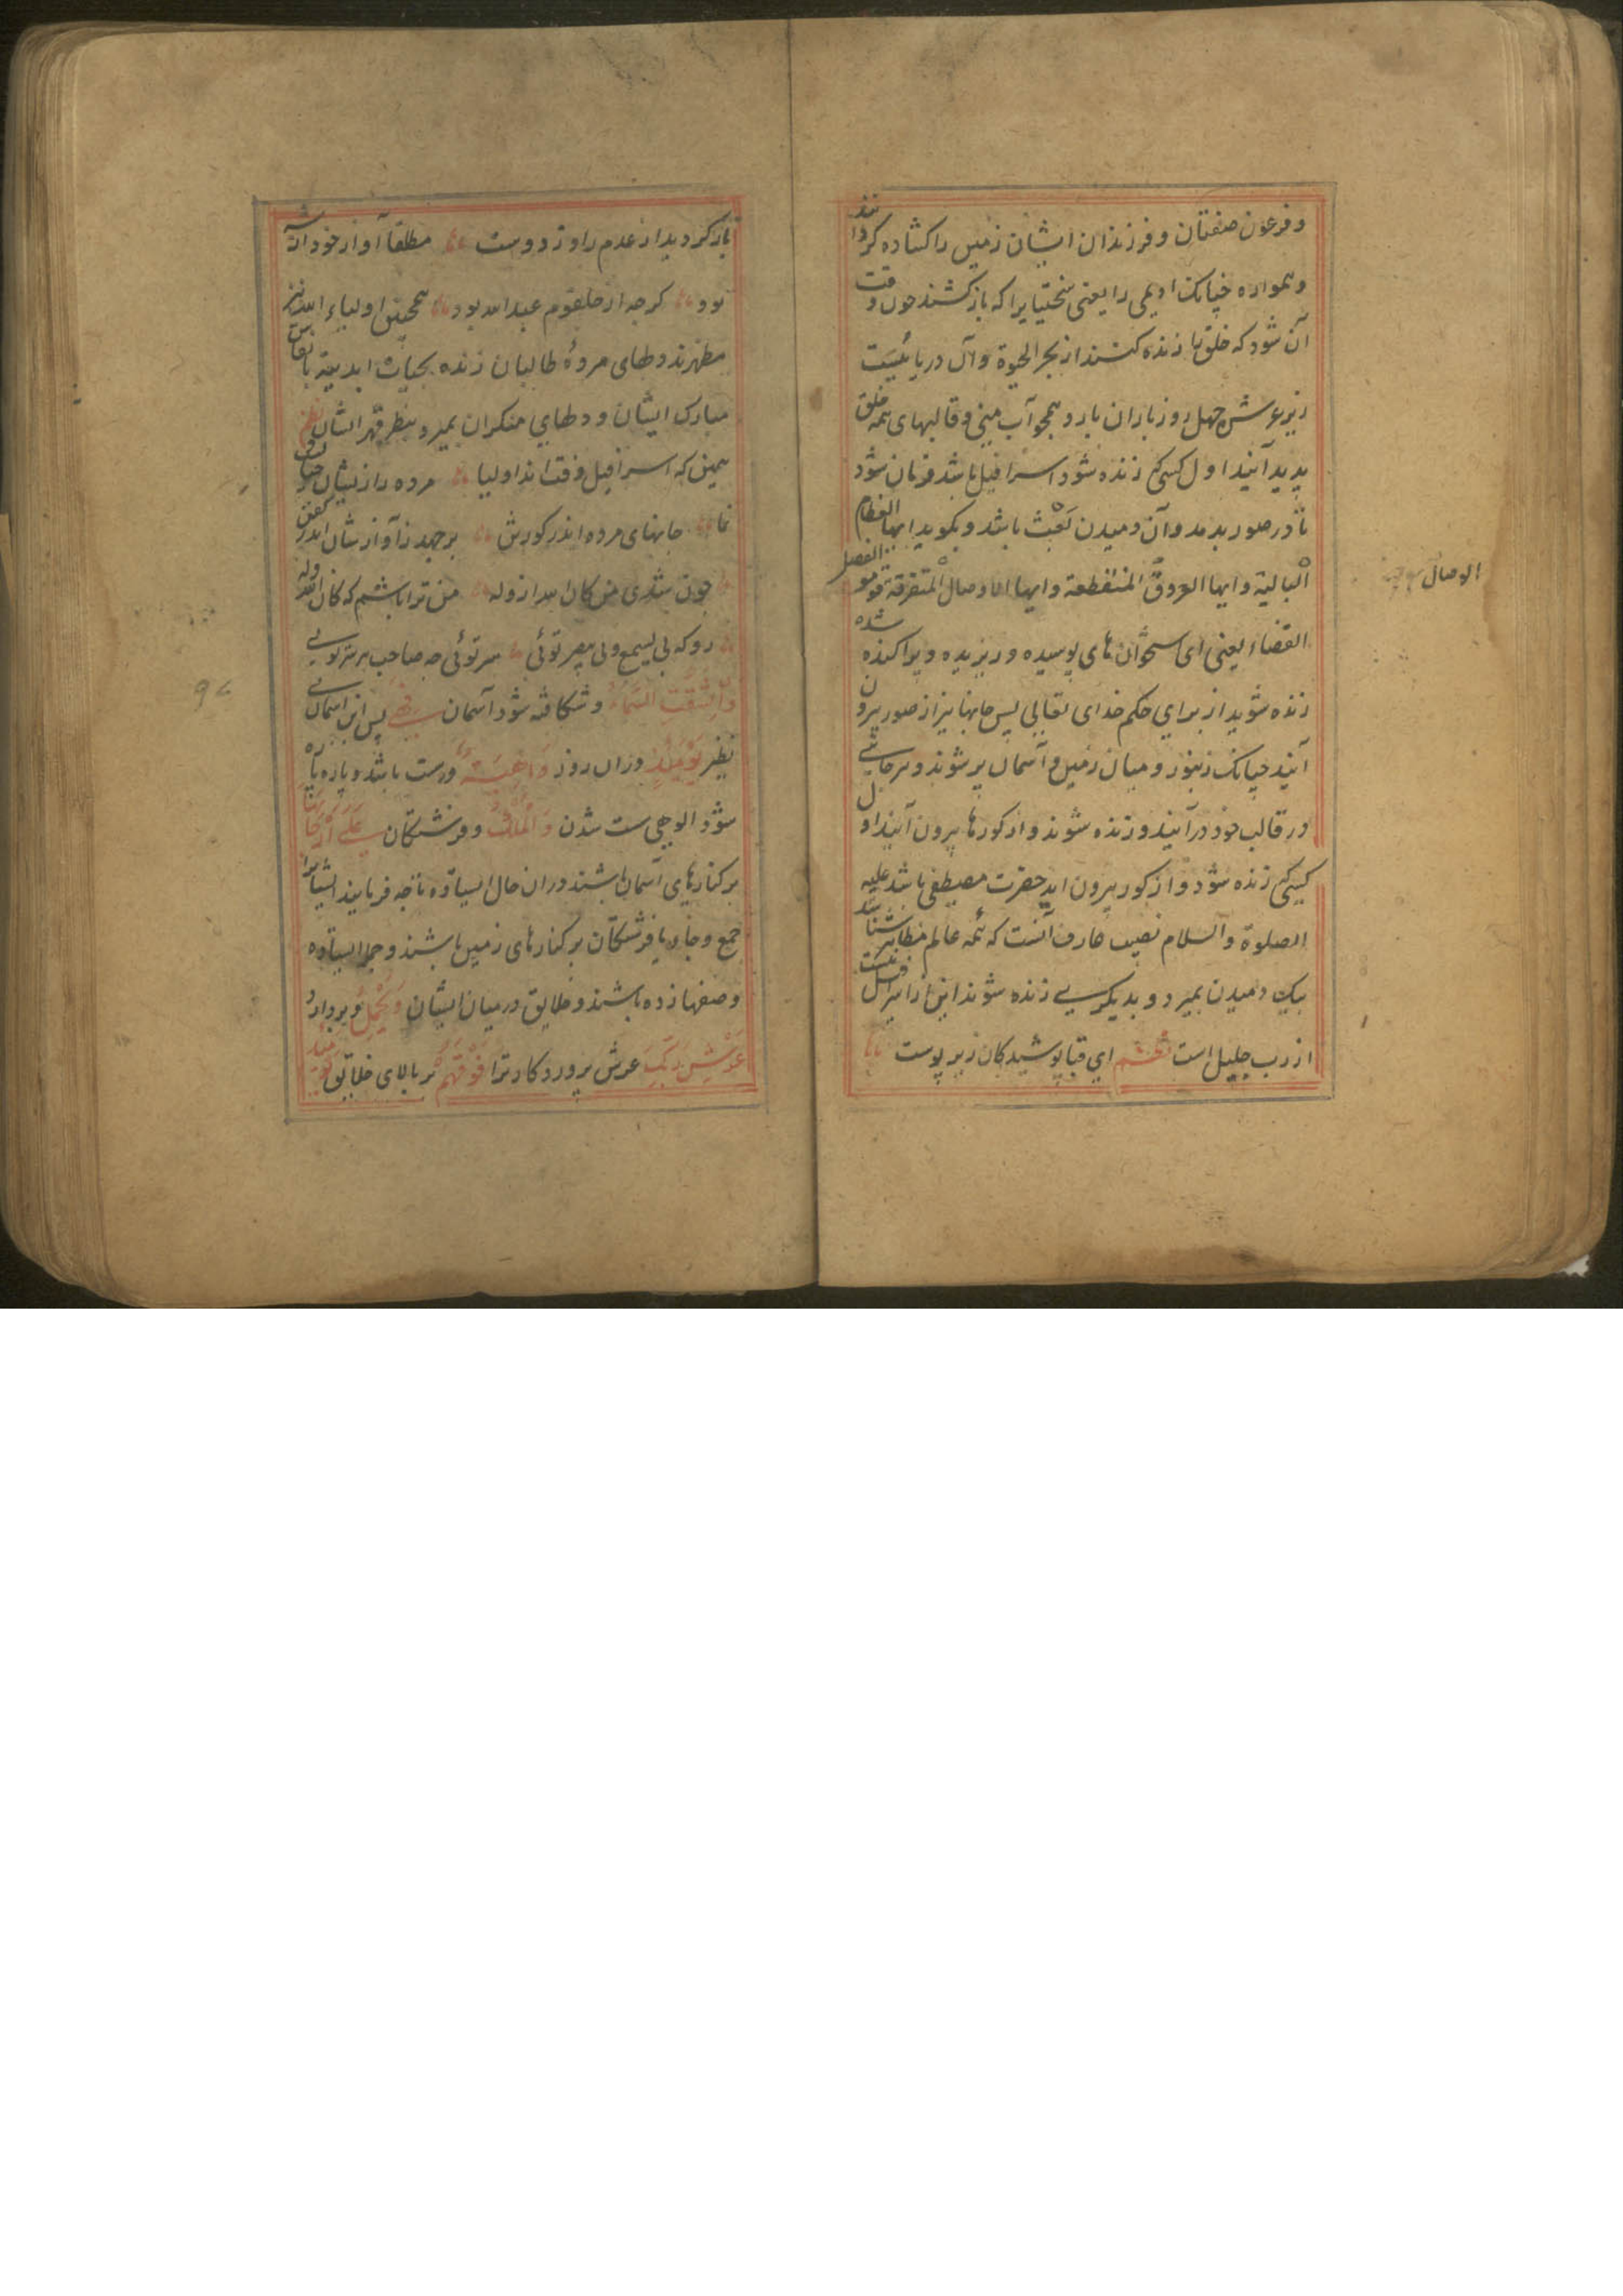 و فرعون صفتان و فرزندان ایشان زمین را کشاده کردانند
و همواره چنانک ادیمی را یعنی سختیانرا که باز کشند چون وقت
آن شود که خلق را زنده کنند از بحر الحیوة و آن دریائیست
زیر عرش چهل روز باران بارد همچو آب منی و قالبهای همه خلق
پدید آیند اول کسی که زنده شود اسرافیل باشد فرمان شود
تا در صور بدمد و آن دمیدن بعث باشد و بکوید ایها العظام
البالیة و ایها العروق المنقطعة و ایها الاوصال المتفرقة قوموا لفصل
القضاء یعنی ای استخوان های پوسیده و ریزیده و پراکنده شده
زنده شوید از برای حکم خدای تعالی پس جانها نیز از صور بیرون
آیند چنانک زنبور و میان زمین و آسمان پر شوند و هر جانی
در قالب خود در آیند و زنده شوند و از کورها بیرون آیند اول
کسی که زنده شود و از کور بیرون اید حضرت مصطفی باشد علیه
الصلوة والسلام نصیب عارف آنست که همه عالم منظر باشند
بیک دمیدن بمیرد و بدیکری زنده شوند این از اسرافیل نیست
از رب جلیل است نظم ای قبا پوشیدکان زیر پوست
الاوصال
باز کردید از عدم ز آواز دوست مطلقا آواز خود از شه
بود کرچه از حلقوم عبد الله بود همچنین اولیاء الله نیز
مظهرند دلهای مردهٔ طالبان زنده بحیات ابدیة بانفاس
مبارک ایشان و دلهای منکران بمیرد بنظر قهر ایشان نظم
همین که اسرافیل وقت اند اولیا مرده را زیشان حیاتست و
نما جانهای مرده اندر کور تن بر جهد ز آواز شان اندر کفن
چون شدی من کان لله از وله من ترا باشم که کان الله له
رو که بی یسمع و بی یبصر توئی سر توئی چه صاحب سر توئی
وَانْشَقَّتِ السَّمَاءُ و شکافته شود آسمان فَهِیَ پس این اسمان بی
نظیر یَوْمَئِذٍ دران روز وَاهِیَةٌ سست باشد و پاره پاره
شود الوهی سست شدن وَالْمَلَکُ و فرشتکان عَلَی أَرْجَائِهَا
بر کنارهای آسمان باشند دران حال ایستاده تا چه فرمایند ایشانرا
جمع و جاء یا فرشتکان بر کنارهای زمین باشند و جمله ایستاده
و صفها زده باشند و خلایق در میان ایشان وَیَحْمِلُ و بردارد
عَرْشَ رَبِّکَ عرش پروردکار ترا فَوْقَهُمْ بر بالای خلایق یَوْمَئِذٍ